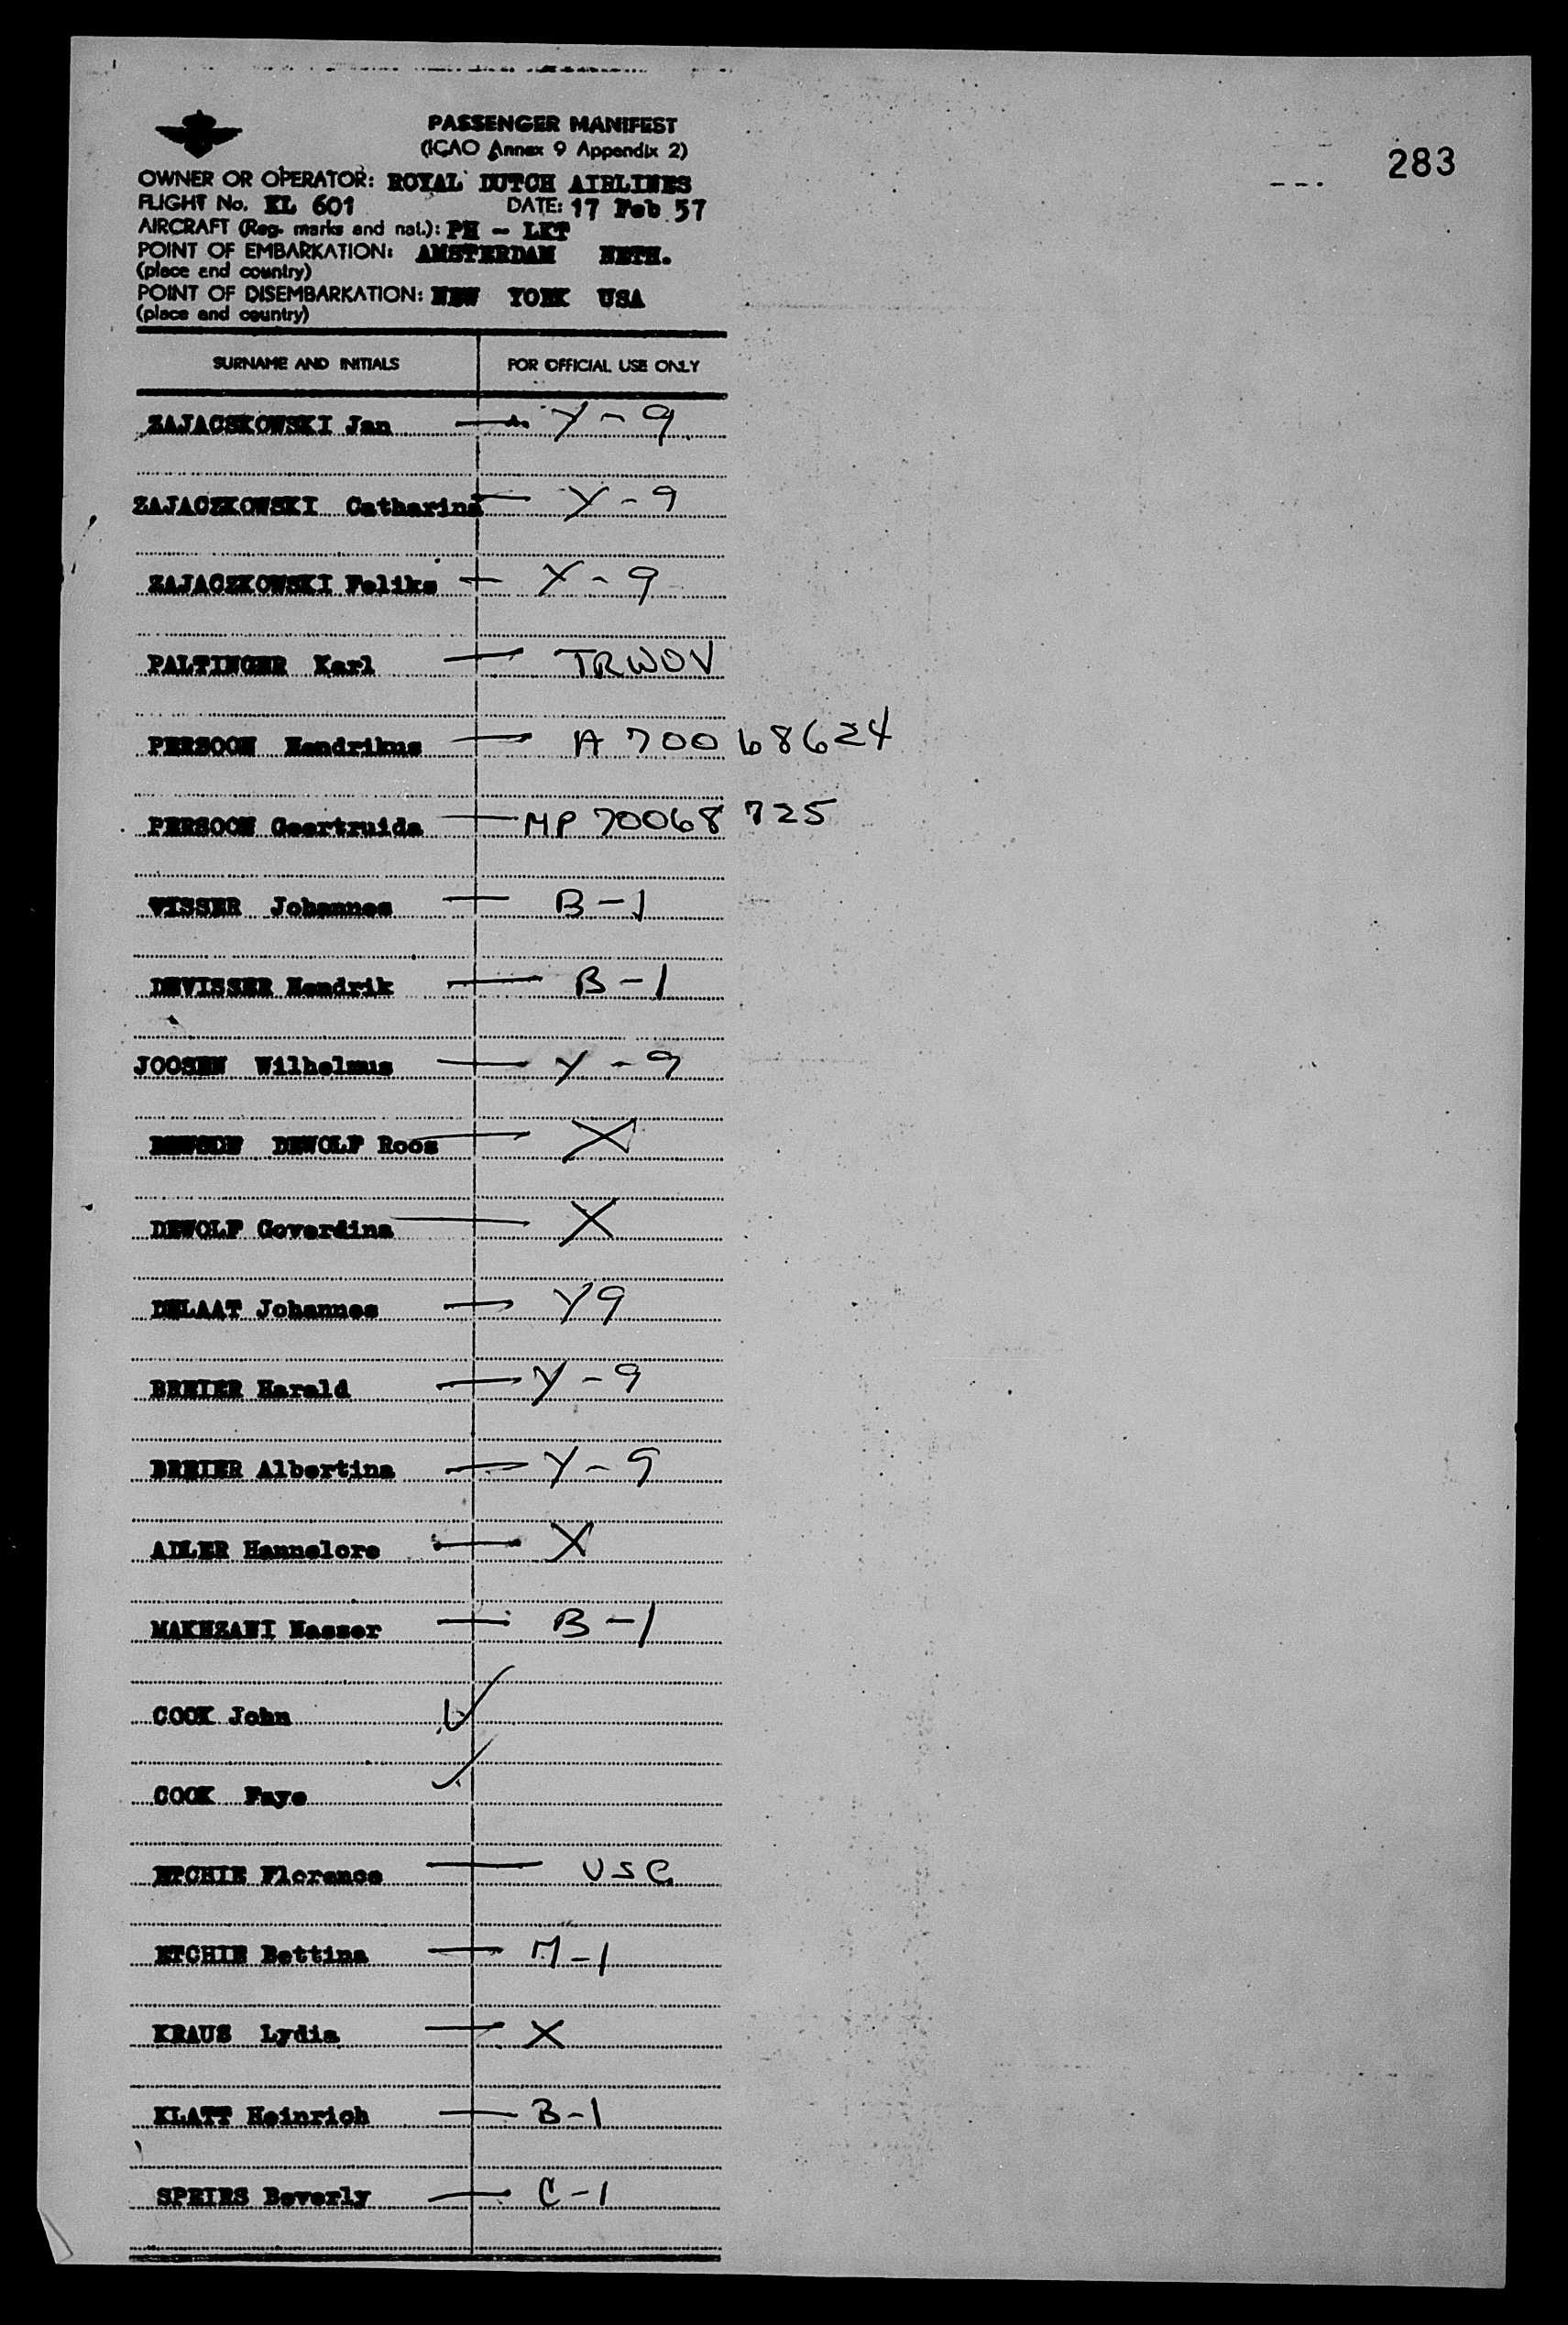 283
PASSENGER MANIFEST
(ICAO Annex 9 Appendix 2)
OWNER OR OPERATOR: ROYAL DUTCH AIRLINES
FLIGHT No. KL 601 DATE: 17 Feb 57
AIRCRAFT (Reg. marks and nat.): PH - LKT
POINT OF EMBARKATION: AMSTERDAM NETH.
(place and country)
POINT OF DISEMBARKATION: NEW YORK USA
(place and country)
SURNAME AND INITIALS FOR OFFICIAL USE ONLY
ZAJACSKOWSKI Jan Y-9
ZAJACZKOWSKI Catharina Y-9
ZAJACZKOWSKI Feliks Y-9
PALTINGER Karl TRWOV
PERSOON Hendrikus A 70068624
PERSOON Geertruida MP 70068725
VISSER Johannes B-1
DEVISSER Hendrik B-1
JOOSEN Wilhelmus Y-9
DEWOLF Roos X
DEWOLF Goverdina X
DELAAT Johannes Y9
BREIER Harald Y-9
BREIER Albertina Y-9
ADLER Hannelore X
MAKHZANI Nasser B-1
COOK John
COOK Faye
ETCHIE Florence USC
ETCHIE Bettina M-1
KRAUS Lydia X
KLATT Heinrich B-1
SPEIRS Beverly C-1